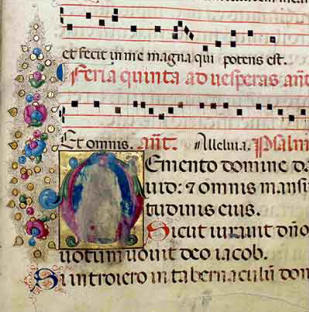 et fecit in me magna qui potens est.
Feria quinta ad vesperas ant
Et omnis. ant. Alleluia. Psalm
Memento domine da
uid: et omnis mansu
etudinis eius.
Sicut iurauit dño
uotum uouit deo iacob.
Si introiero in tabernaculũ dom